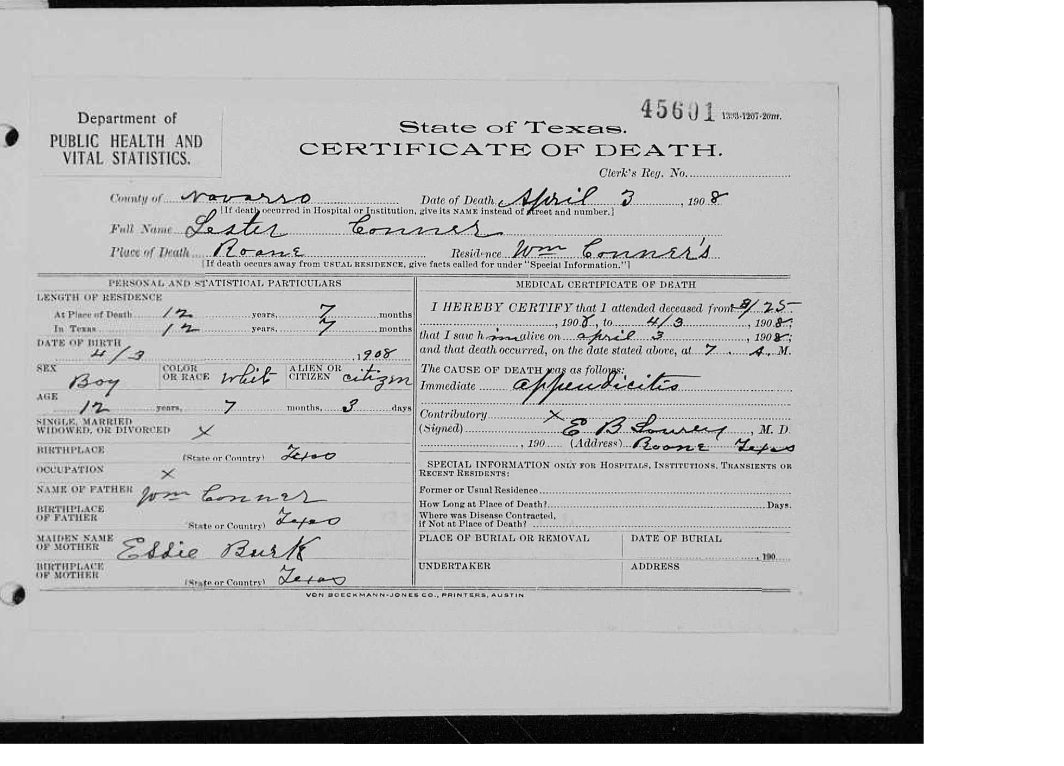 45601 1393-1207-20m.
Department of
PUBLIC HEALTH AND
VITAL STATISTICS.
State of Texas.
CERTIFICATE OF DEATH.
Clerk's Reg. No.
County of Navarro Date of Death April 3, 1908
[If death occurred in Hospital or Institution, give its NAME instead of street and number.]
Full Name Lester Conner
Place of Death Roane Residence Wm Conner's
[If death occurs away from USUAL RESIDENCE, give facts called for under "Special Information."]
PERSONAL AND STATISTICAL PARTICULARS
LENGTH OF RESIDENCE
At Place of Death 12 years, 7 months
In Texas 12 years, 7 months
DATE OF BIRTH
4/3, 1908
SEX Boy COLOR OR RACE Whit ALIEN OR CITIZEN citizen
AGE
12 years, 7 months, 3 days
SINGLE, MARRIED
WIDOWED, OR DIVORCED X
BIRTHPLACE
(State or Country) Texas
OCCUPATION X
NAME OF FATHER Wm Conner
BIRTHPLACE
OF FATHER (State or Country) Texas
MAIDEN NAME
OF MOTHER Eddie Burk
BIRTHPLACE
OF MOTHER (State or Country) Texas
MEDICAL CERTIFICATE OF DEATH
I HEREBY CERTIFY that I attended deceased from 8/25
, 1908, to 4/3, 1908,
that I saw him alive on april 3 1908,
and that death occurred, on the date stated above, at 7 A. M.
The CAUSE OF DEATH was as follows:
Immediate appendicitis
Contributory X
(Signed) E B Lowrey, M. D.
, 190 (Address) Roane Texas
SPECIAL INFORMATION ONLY FOR HOSPITALS, INSTITUTIONS, TRANSIENTS OR
RECENT RESIDENTS:
Former or Usual Residence
How Long at Place of Death? Days.
Where was Disease Contracted,
if Not at Place of Death?
PLACE OF BURIAL OR REMOVAL DATE OF BURIAL
, 190
UNDERTAKER ADDRESS
VON BOECKMANN-JONES CO., PRINTERS, AUSTIN